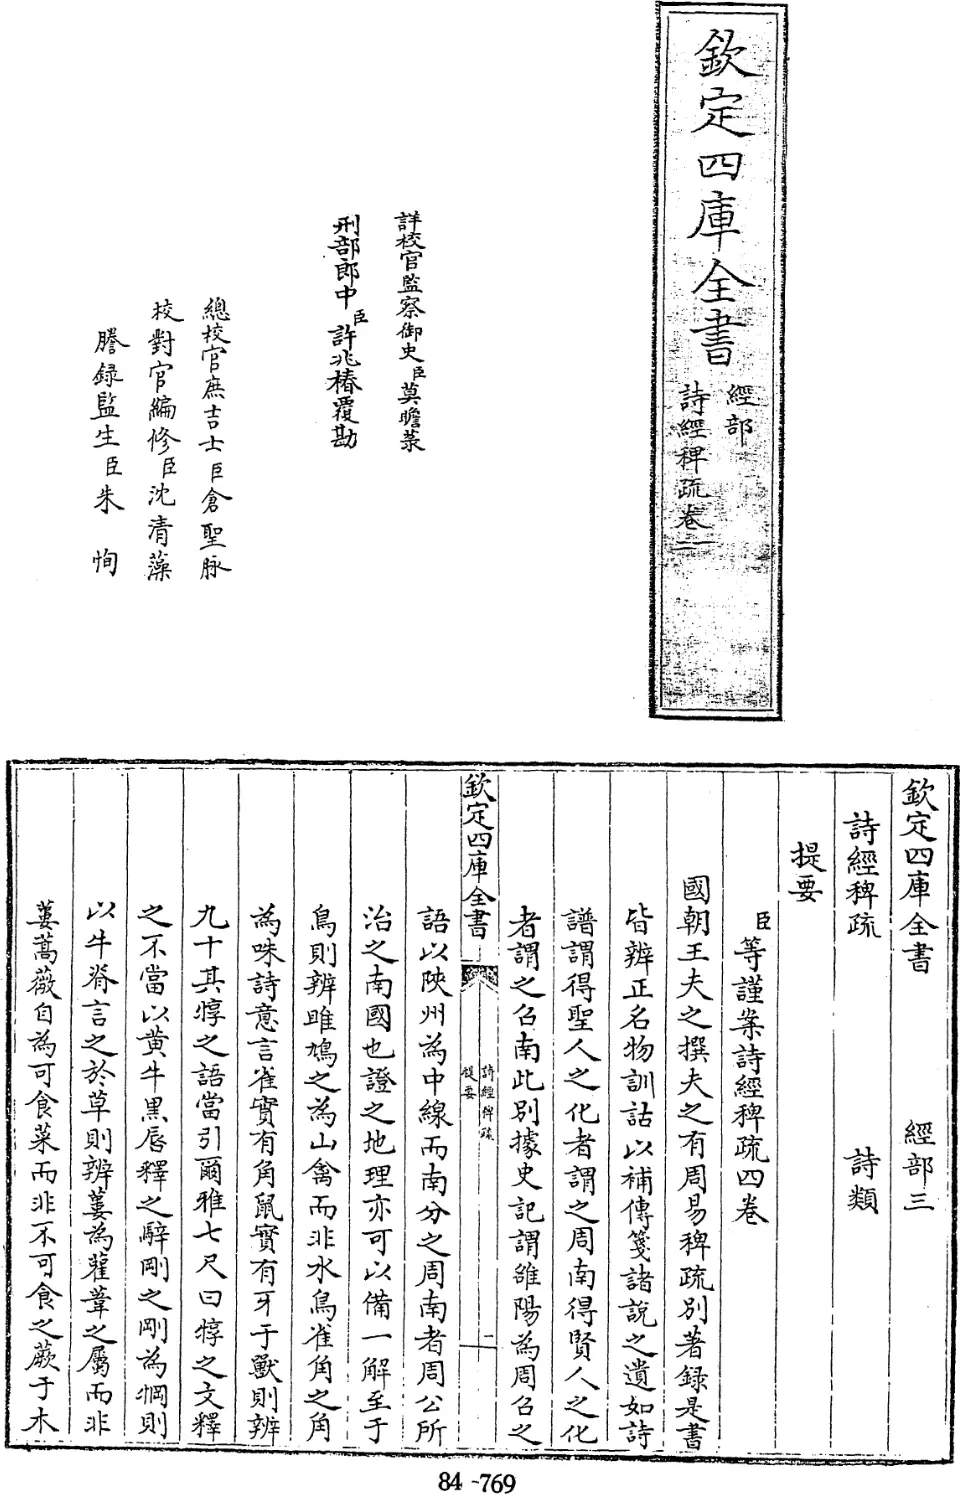 欽定四庫全書
經部
詩經稗疏卷一
詳校官監察御史臣莫瞻菉
刑部郎中臣許兆椿覆勘
總校官庶吉士臣倉聖脉
校對官編修臣沈清藻
謄錄監生臣朱恂
欽定四庫全書 經部三
詩經稗疏 詩類
提要
臣等謹案詩經稗疏四卷
國朝王夫之撰夫之有周易稗疏別著錄是書
皆辨正名物訓詁以補傳箋諸說之遺如詩
譜謂得聖人之化者謂之周南得賢人之化
者謂之召南此別據史記謂雒陽為周召之
欽定四庫全書
詩經稗疏
提要
語以陝州為中線而南分之周南者周公所
治之南國也證之地理亦可以備一解至于
鳥則辨雎鳩之為山禽而非水鳥雀角之角
為咮詩意言雀實有角鼠實有牙于獸則辨
九十其犉之語當引爾雅七尺曰犉之文釋
之不當以黃牛黑唇釋之騂剛之剛為犅則
以牛脊言之於草則辨蔞為雚葦之屬而非
蔞蒿薇自為可食菜而非不可食之蕨于木
84-769